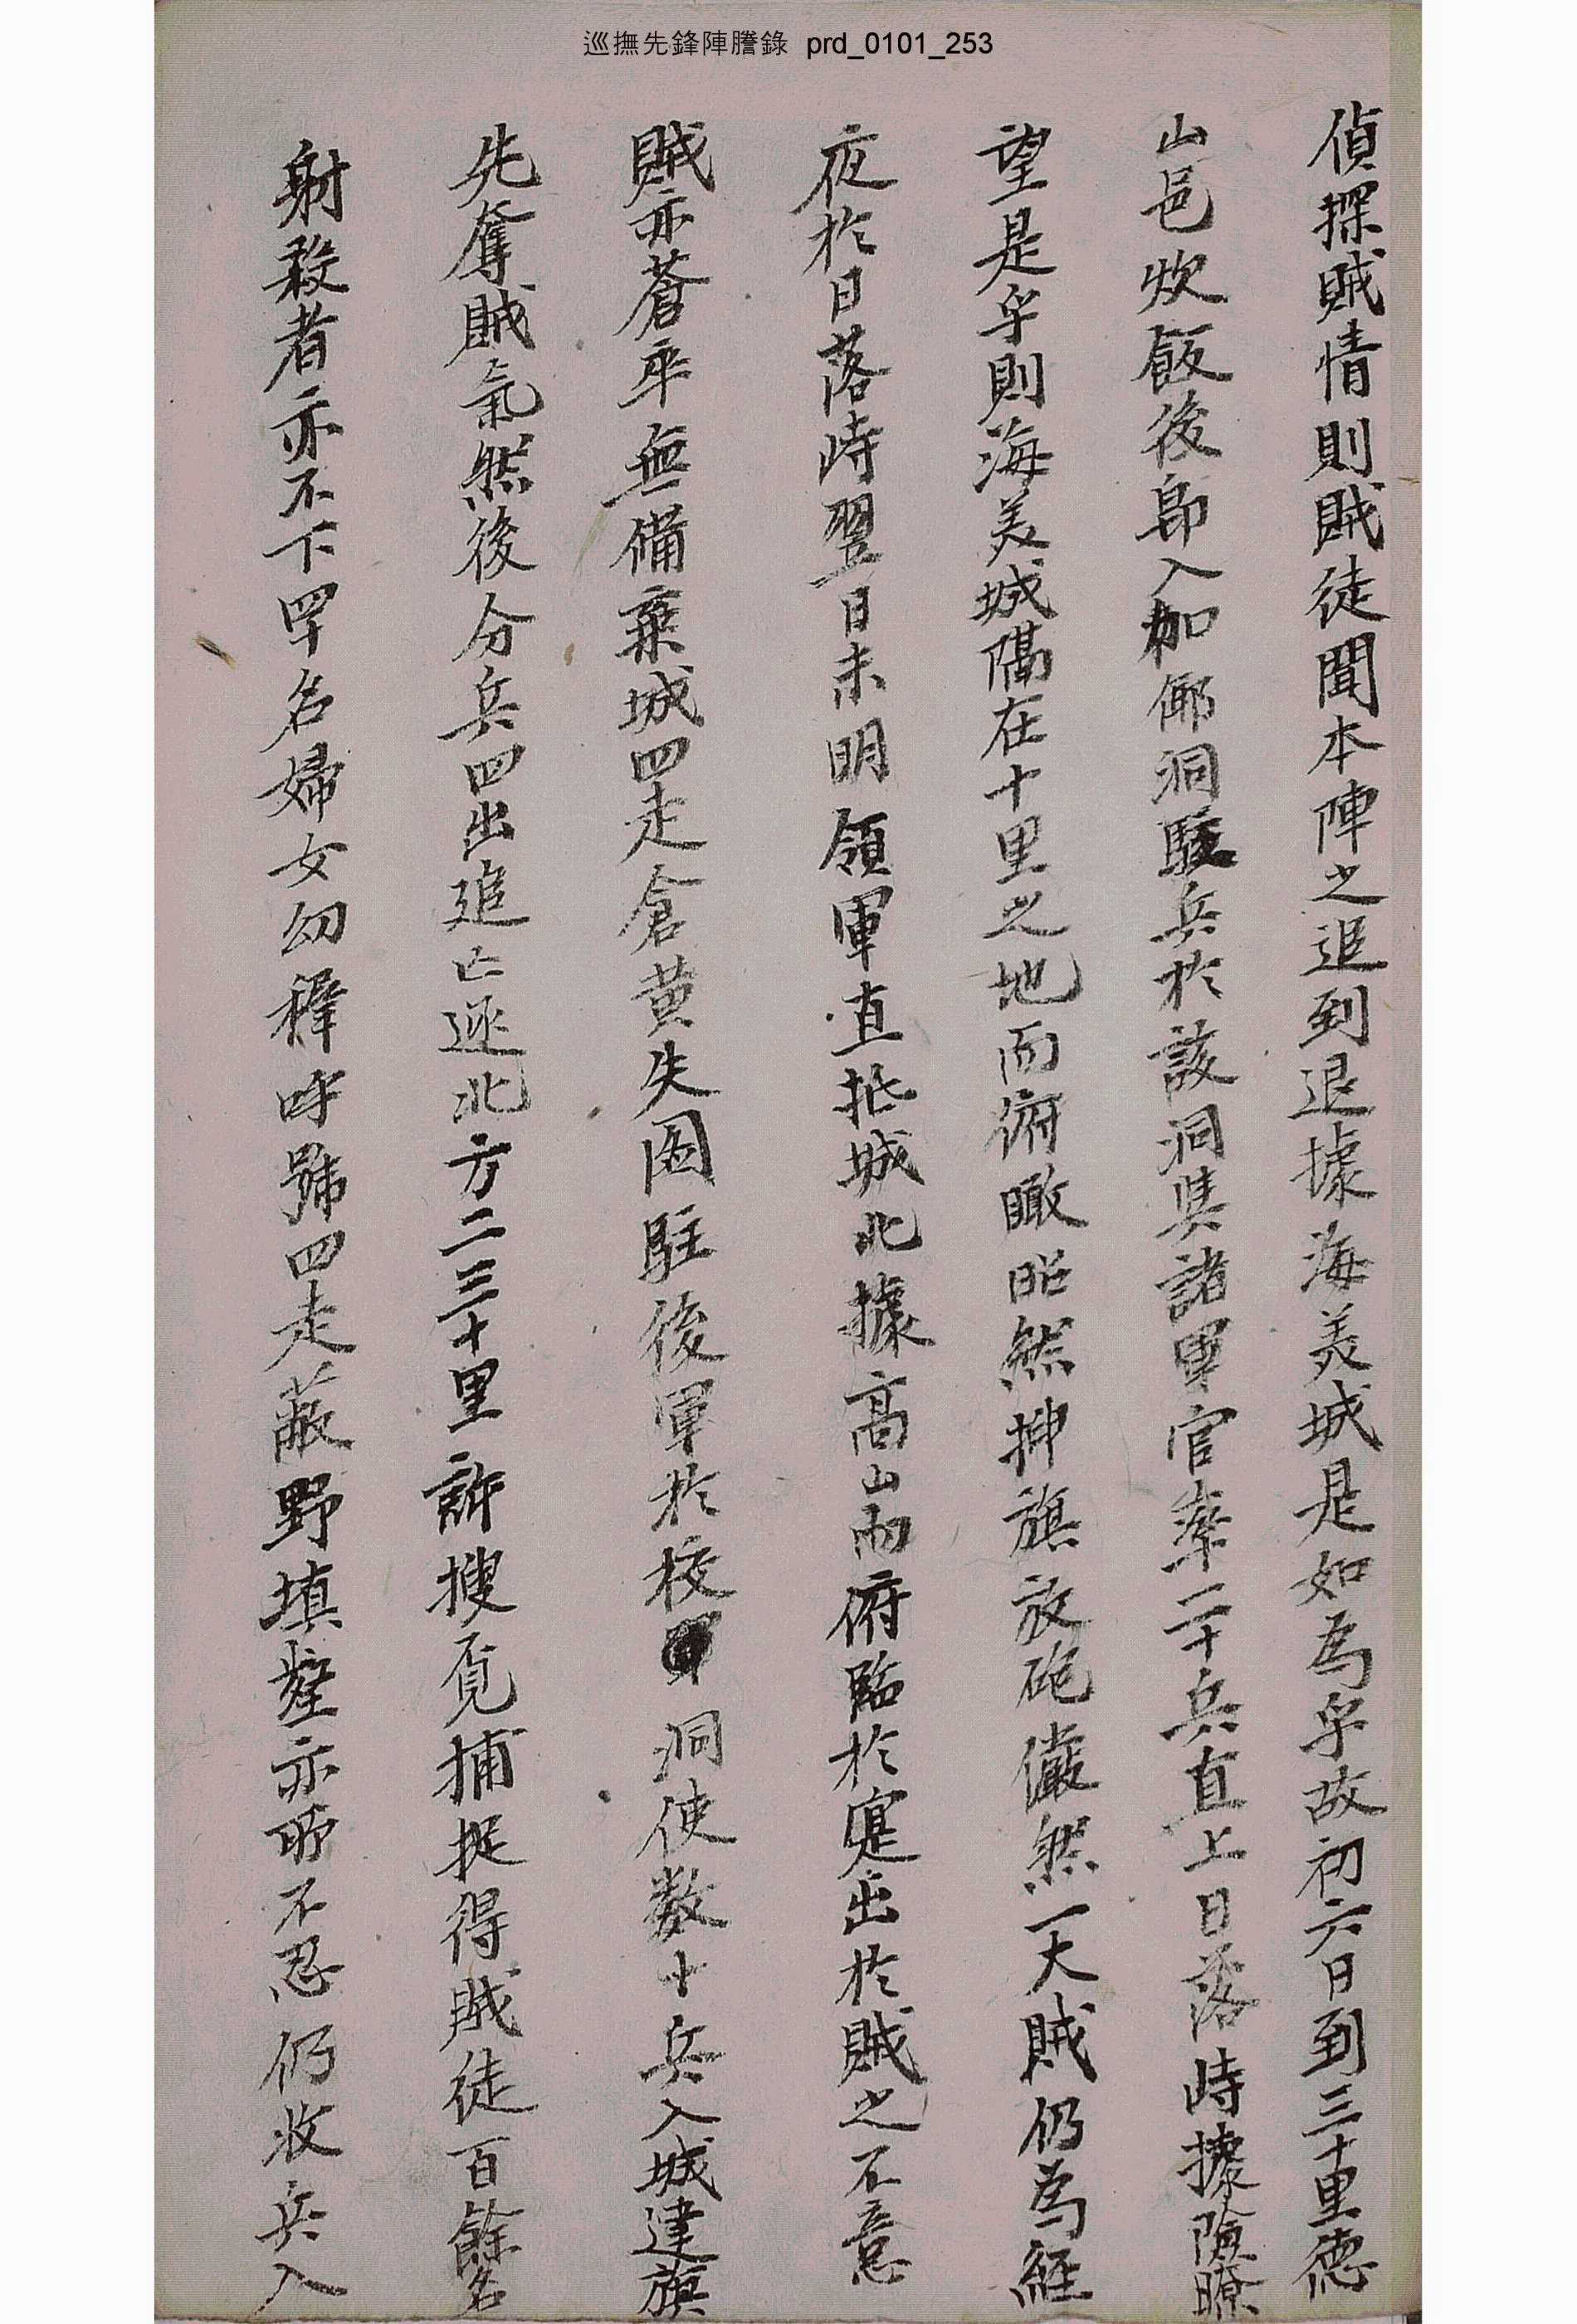 巡撫先鋒陣謄錄 prd_0101_253
偵探賊情則賊徒聞本陣之追到退據海美城是如為乎故初六日到三十里德
山邑炊飯後即入加倻洞駐兵於該洞與諸軍官率二十兵直上日落時據險瞭
望是乎則海美城隔在十里之地而俯瞰昭然揷旗放砲儼然一大賊仍為經
夜於日落時翌日未明領軍直抵城北據高山而俯臨於寔出於賊之不意
賊亦蒼卒無備棄城四走倉黃失圖駐後軍於校洞使數十兵入城建旗
先奪賊氣然後分兵四出追亡逐北方二三十里許搜覓捕捉得賊徒百餘名
射殺者亦不下四十名婦女幼穉呼號四走蔽野填壑亦所不忍仍收兵入